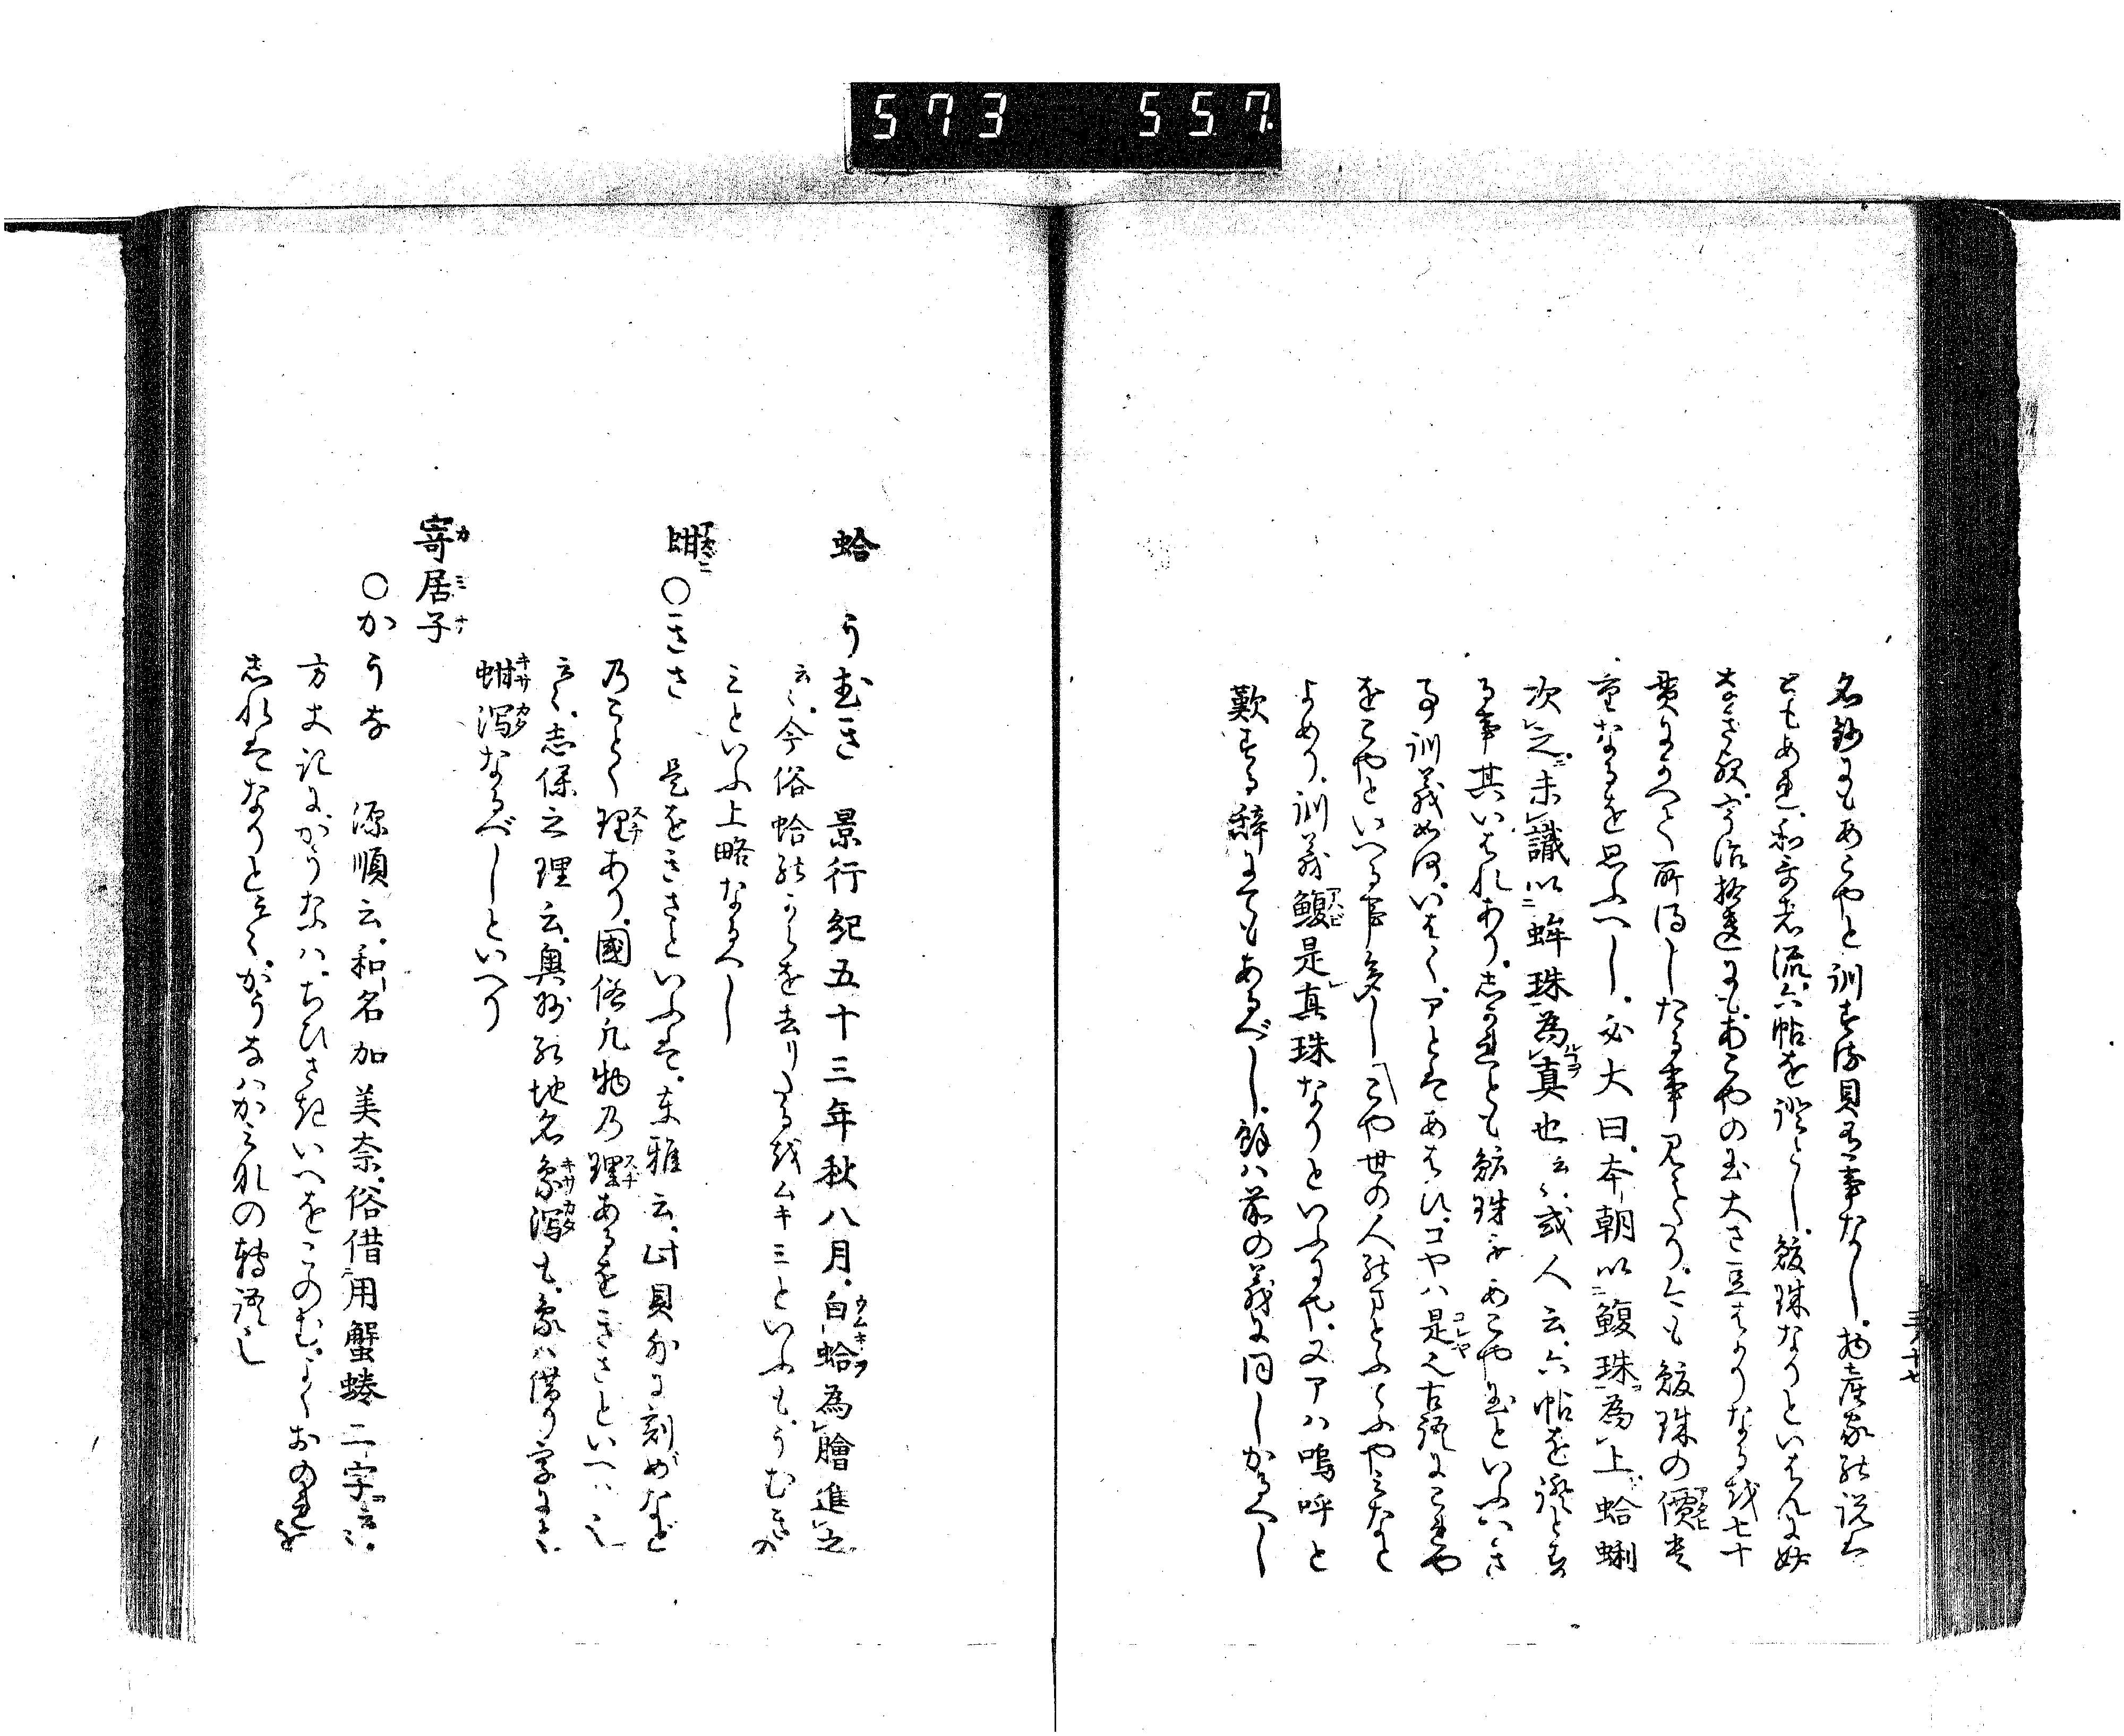 573 557
名鈔にもあこやと訓する貝の事なし。物産家の説は
ともあれ、和哥者流六帖を證とし、鰒珠なりといはんに妨
なき歟。宇治拾遺にも、あこやの玉大さ豆はかりなるを七十
貫にかへて所得したる事見えたり。今も鰒珠の價貴
重なるを思ふへし。必大曰、本朝以鰒珠為上、蛤蜊
次之、未識以蚌珠為真也云々。或人云、六帖を證とす
る事其いはれあり。しかれとも鰒珠をあこや玉といふへき
訓義如何。いはく、アとはあはひ、コヤハ是也。古語にこれや
をこやといへる事多し。こや世の人の
よめり。訓義鰒是真珠なりといふにや。又アハ嗚呼と
歎する辞にてもあるべし。餘ハ前の義に同しかるへし
蛤 うむき 景行紀五十三年秋八月。白蛤為膾進之
云々。今俗蛤のからを去りたるをムキミといふも、うむきの
ミといふ上略なるへし
蚶 ○きさ 是をきさといふは、東雅云、此貝外に刻めがなど
乃ことく理あり。國俗凡物乃理あるをきさといへハ也
云々。志保之理云、奥州の地名象潟も、象ハ借り字にて、
蚶潟なるべしといへり
寄居子 カミナ
○かうな 源順云、和名加美奈、俗借用蟹蜷二字云々。
方丈記にがうなハ、ちひさきいへをこのむ、よくおのれを
しれはなりと云々。がうなハかみなの轉語也